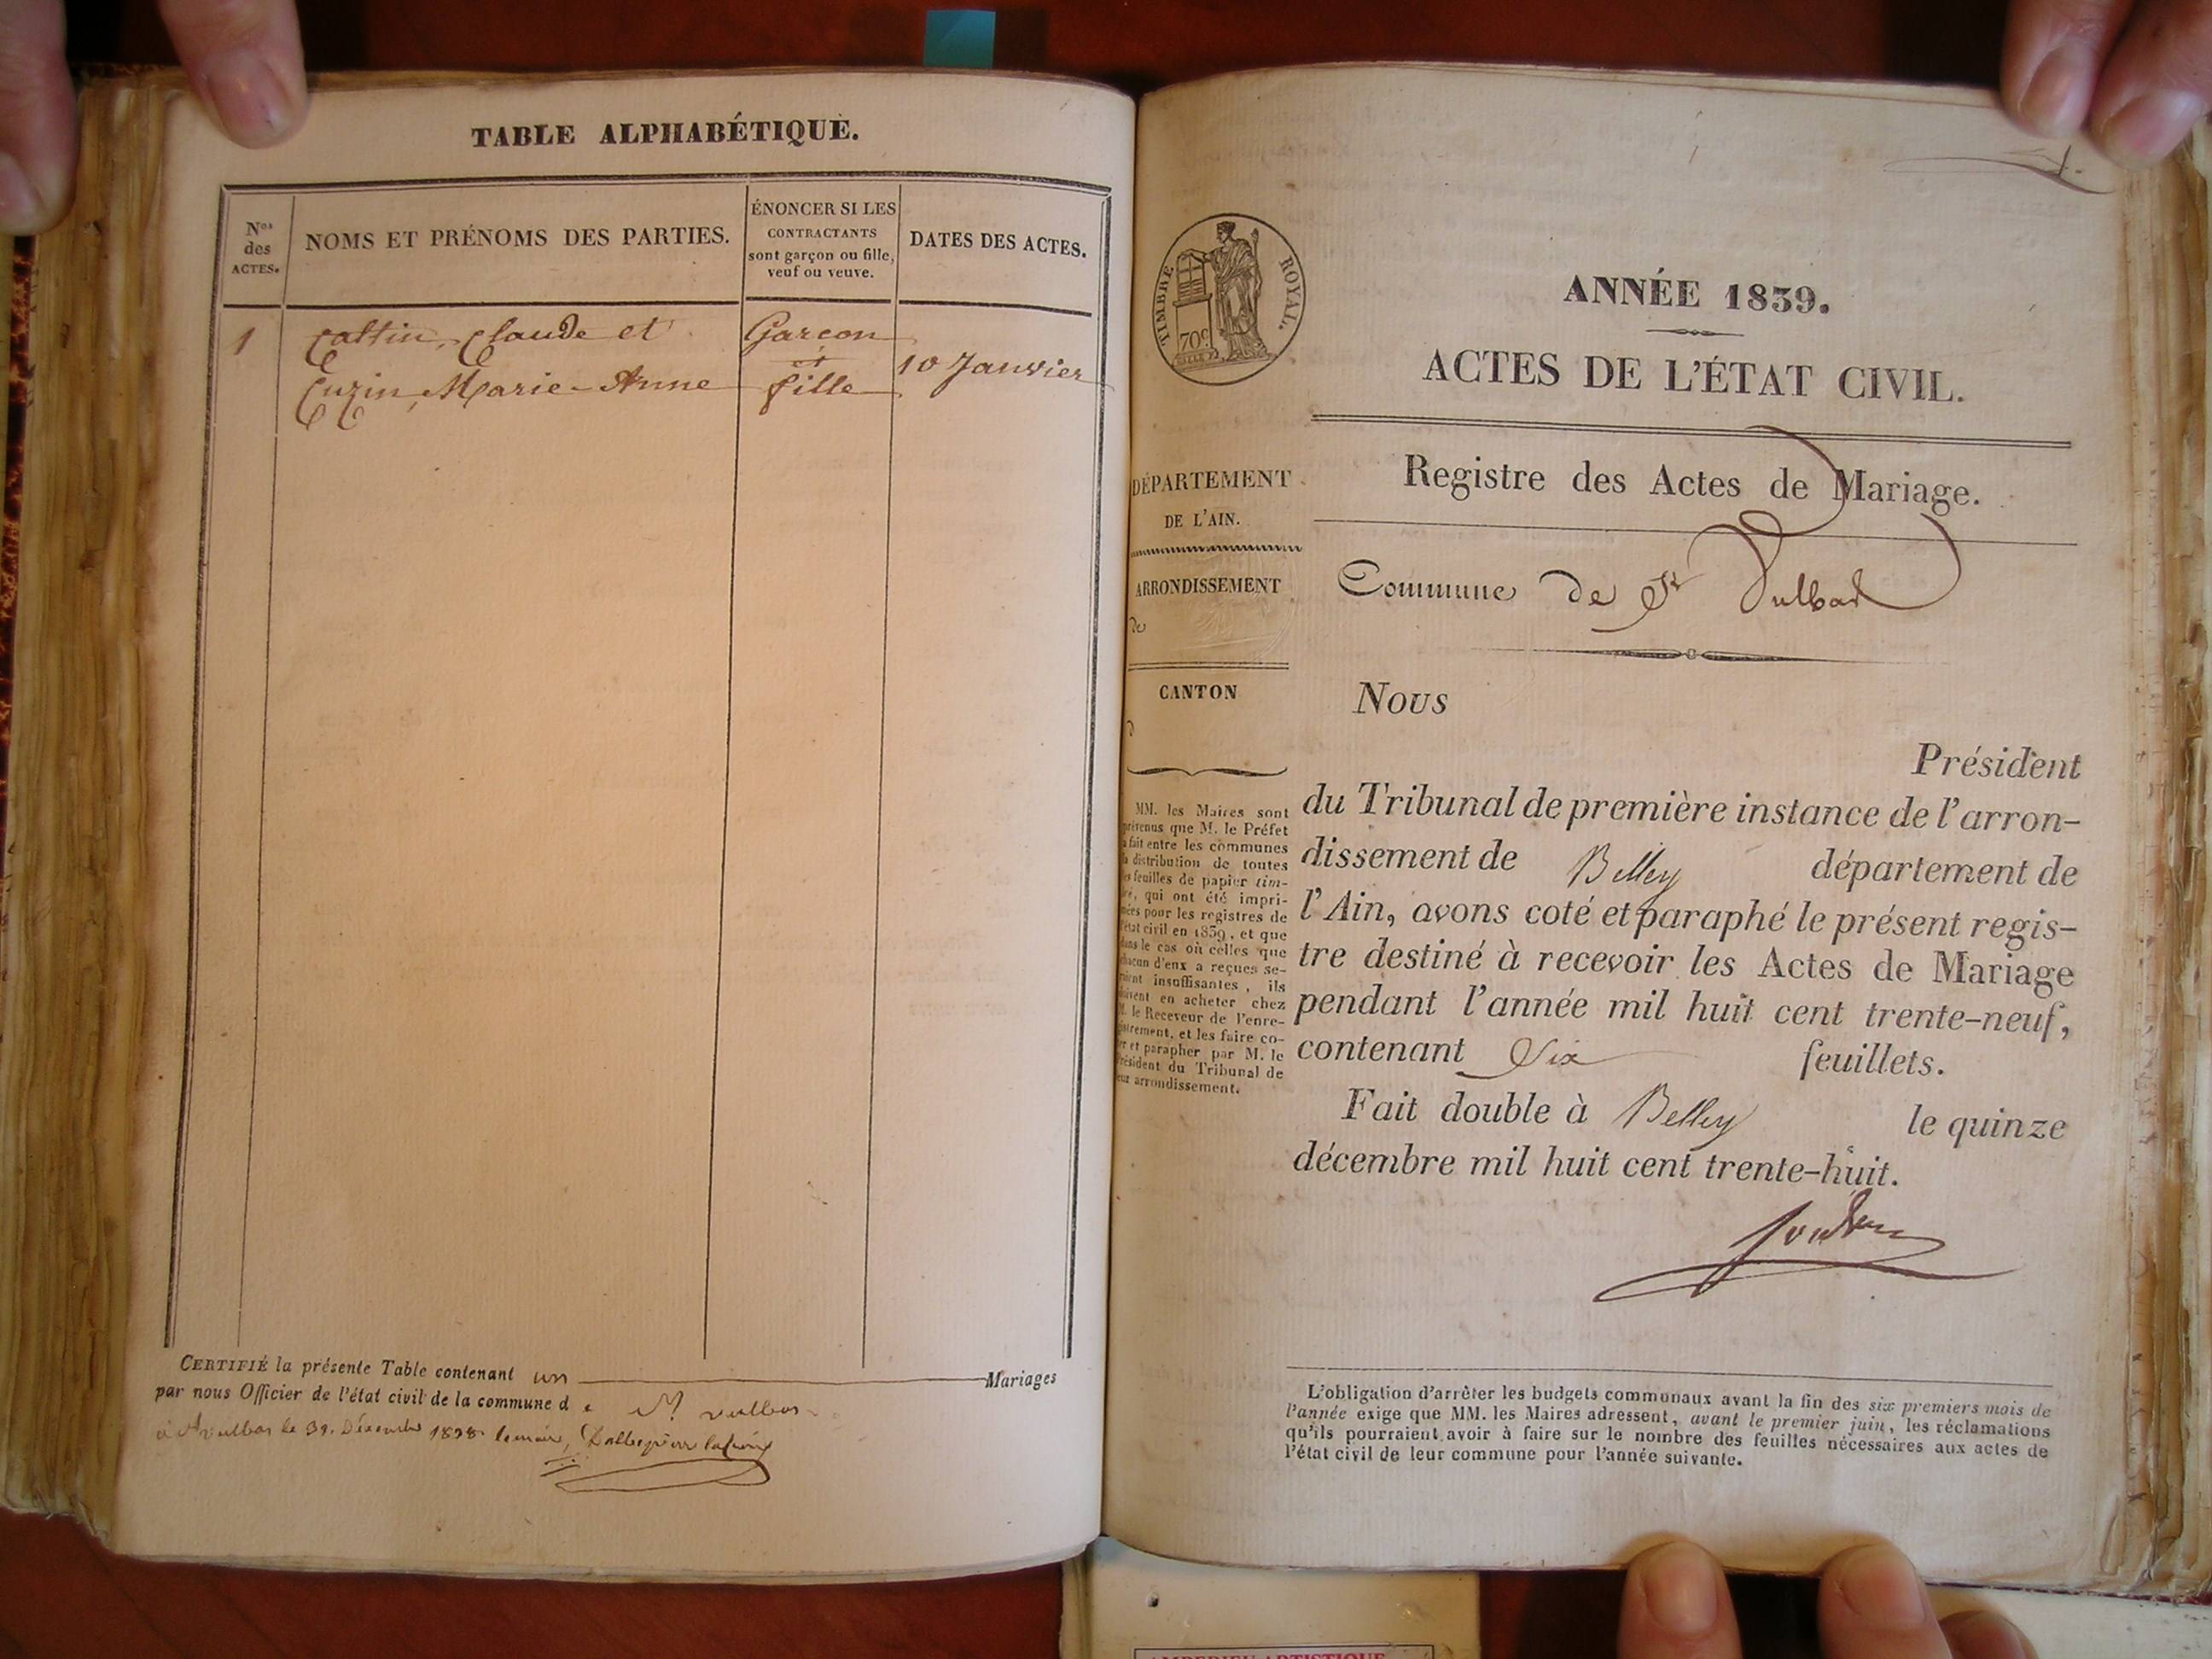 TABLE ALPHABÉTIQUE.
Nos des ACTES.
NOMS ET PRÉNOMS DES PARTIES.
ÉNONCER SI LES
CONTRACTANTS
sont garçon ou fille,
veuf ou veuve.
DATES DES ACTES.
1
Cattin, Claude et
Cuzin, Marie-Anne
Garçon
et
fille
10 Janvier
CERTIFIÉ la présente Table contenant un Mariages
par nous Officier de l'état civil de la commune de St vulbas
à St vulbas le 31. Décembre 1838 le maire,
1.
TIMBRE ROYAL.
70c
ANNÉE 1839.
ACTES DE L'ÉTAT CIVIL.
Registre des Actes de Mariage.
Commune de St Vulbas
DÉPARTEMENT
DE L'AIN.
ARRONDISSEMENT
de
CANTON
d
MM. les Maires sont
prévenus que M. le Préfet
a fait entre les communes
la distribution de toutes
les feuilles de papier tim-
bré, qui ont été impri-
mées pour les registres de
l'état civil en 1839, et que
dans le cas où celles que
chacun d'eux a reçues se-
raient insuffisantes, ils
doivent en acheter chez
M. le Receveur de l'enre-
gistrement, et les faire co-
ter et parapher par M. le
Président du Tribunal de
leur arrondissement.
Nous
Président
du Tribunal de première instance de l'arron-
dissement de Belley département de
l'Ain, avons coté et paraphé le présent regis-
tre destiné à recevoir les Actes de Mariage
pendant l'année mil huit cent trente-neuf,
contenant Six feuillets.
Fait double à Belley le quinze
décembre mil huit cent trente-huit.
L'obligation d'arrêter les budgets communaux avant la fin des six premiers mois de
l'année exige que MM. les Maires adressent, avant le premier juin, les réclamations
qu'ils pourraient avoir à faire sur le nombre des feuilles nécessaires aux actes de
l'état civil de leur commune pour l'année suivante.
AMBERIEU ARTISTIQUE